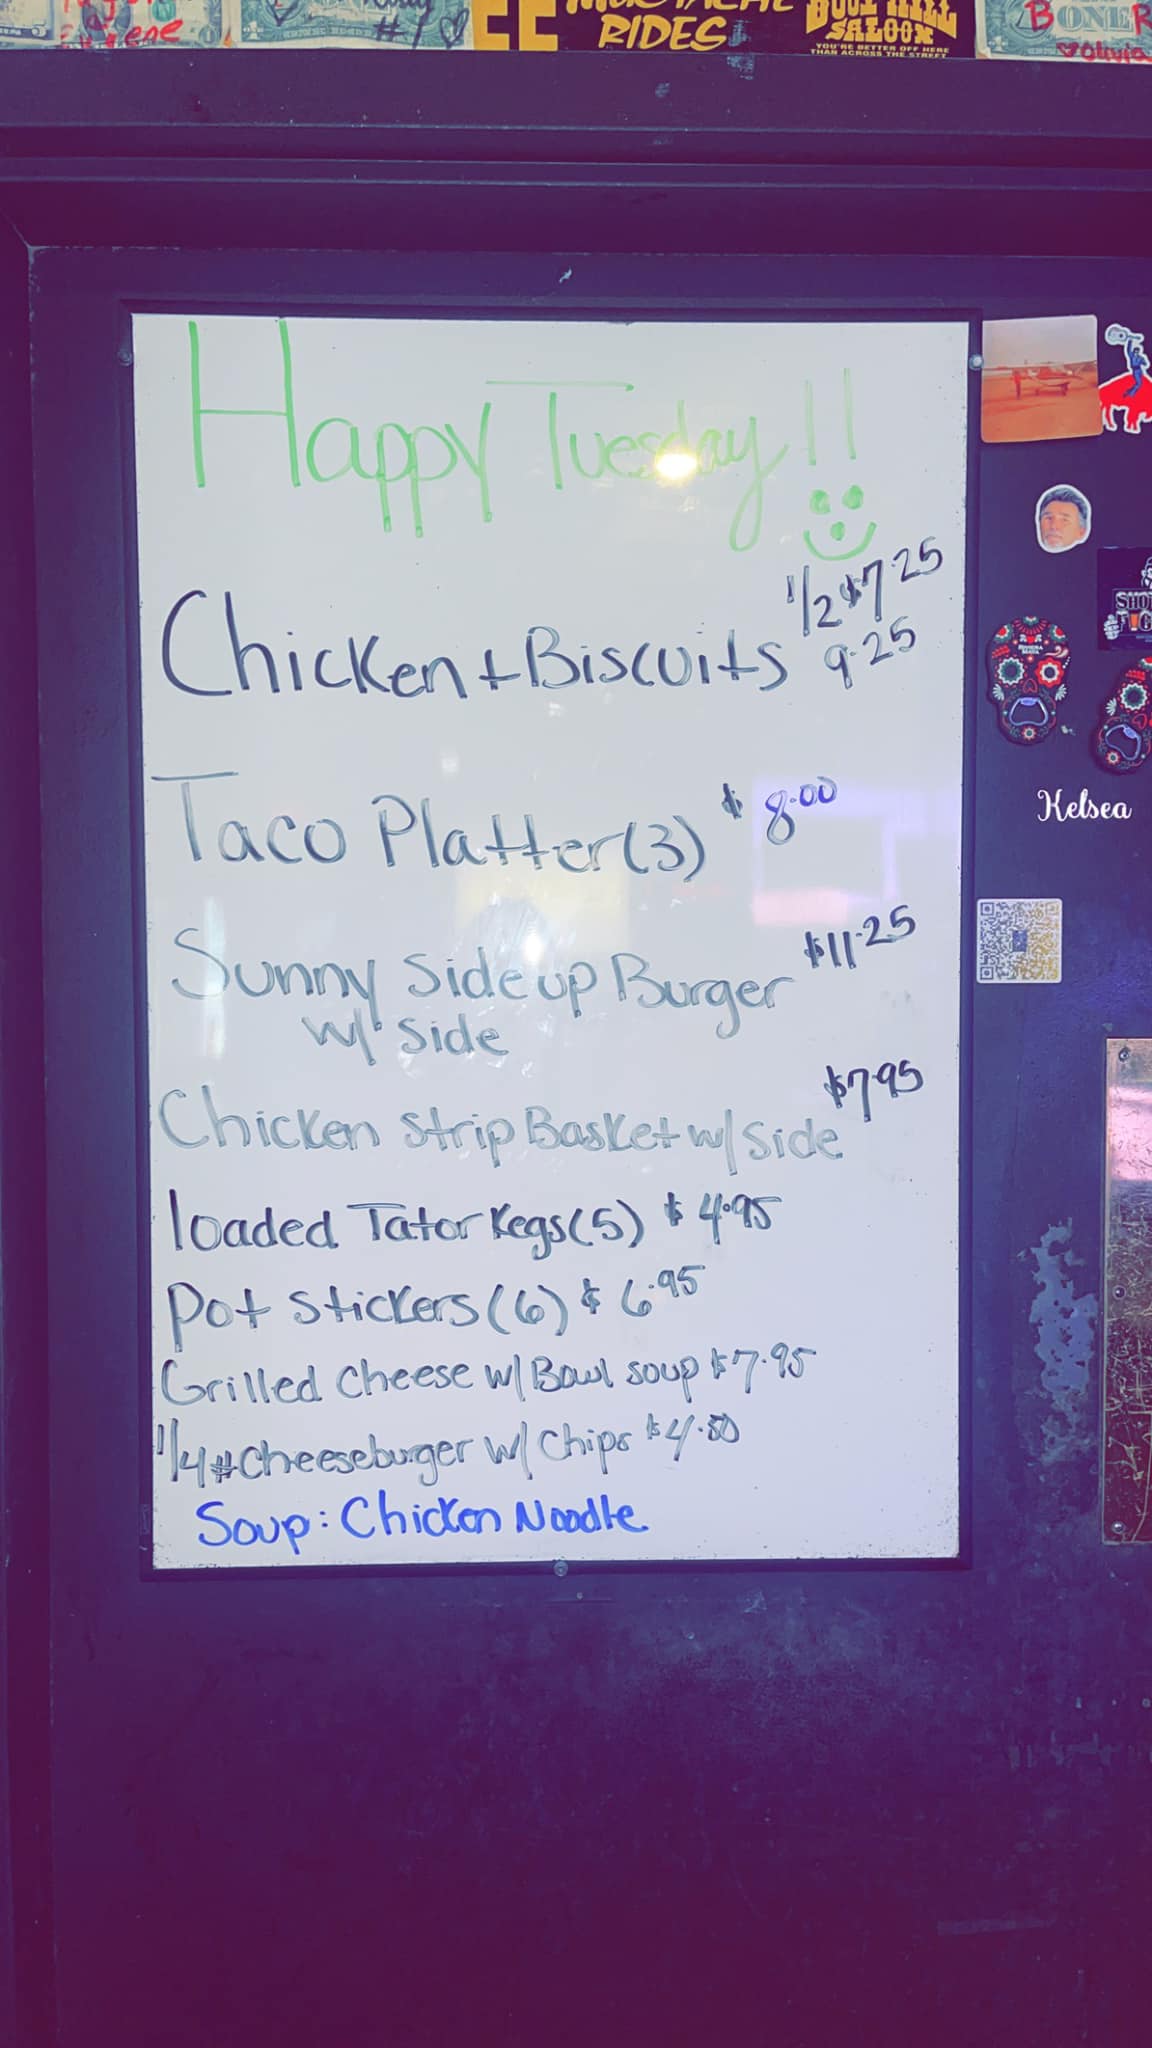 #1
EE
RIDES
BOOT HILL
SALOON
YOU'RE BETTER OFF HERE
THAN ACROSS THE STREET
B ONE R
Olivia
Happy Tuesday!!
1/2 $7.25
Chicken + Biscuits 9.25
Taco Platter (3) $8.00
Sunny Side up Burger $11.25
w/ Side
Chicken Strip Basket w/ Side $7.95
loaded Tator Kegs (5) $4.95
Pot stickers (6) $6.95
Grilled Cheese w/ Bowl soup $7.95
1/4# Cheeseburger w/ Chips $4.50
Soup: Chicken Noodle
Kelsea